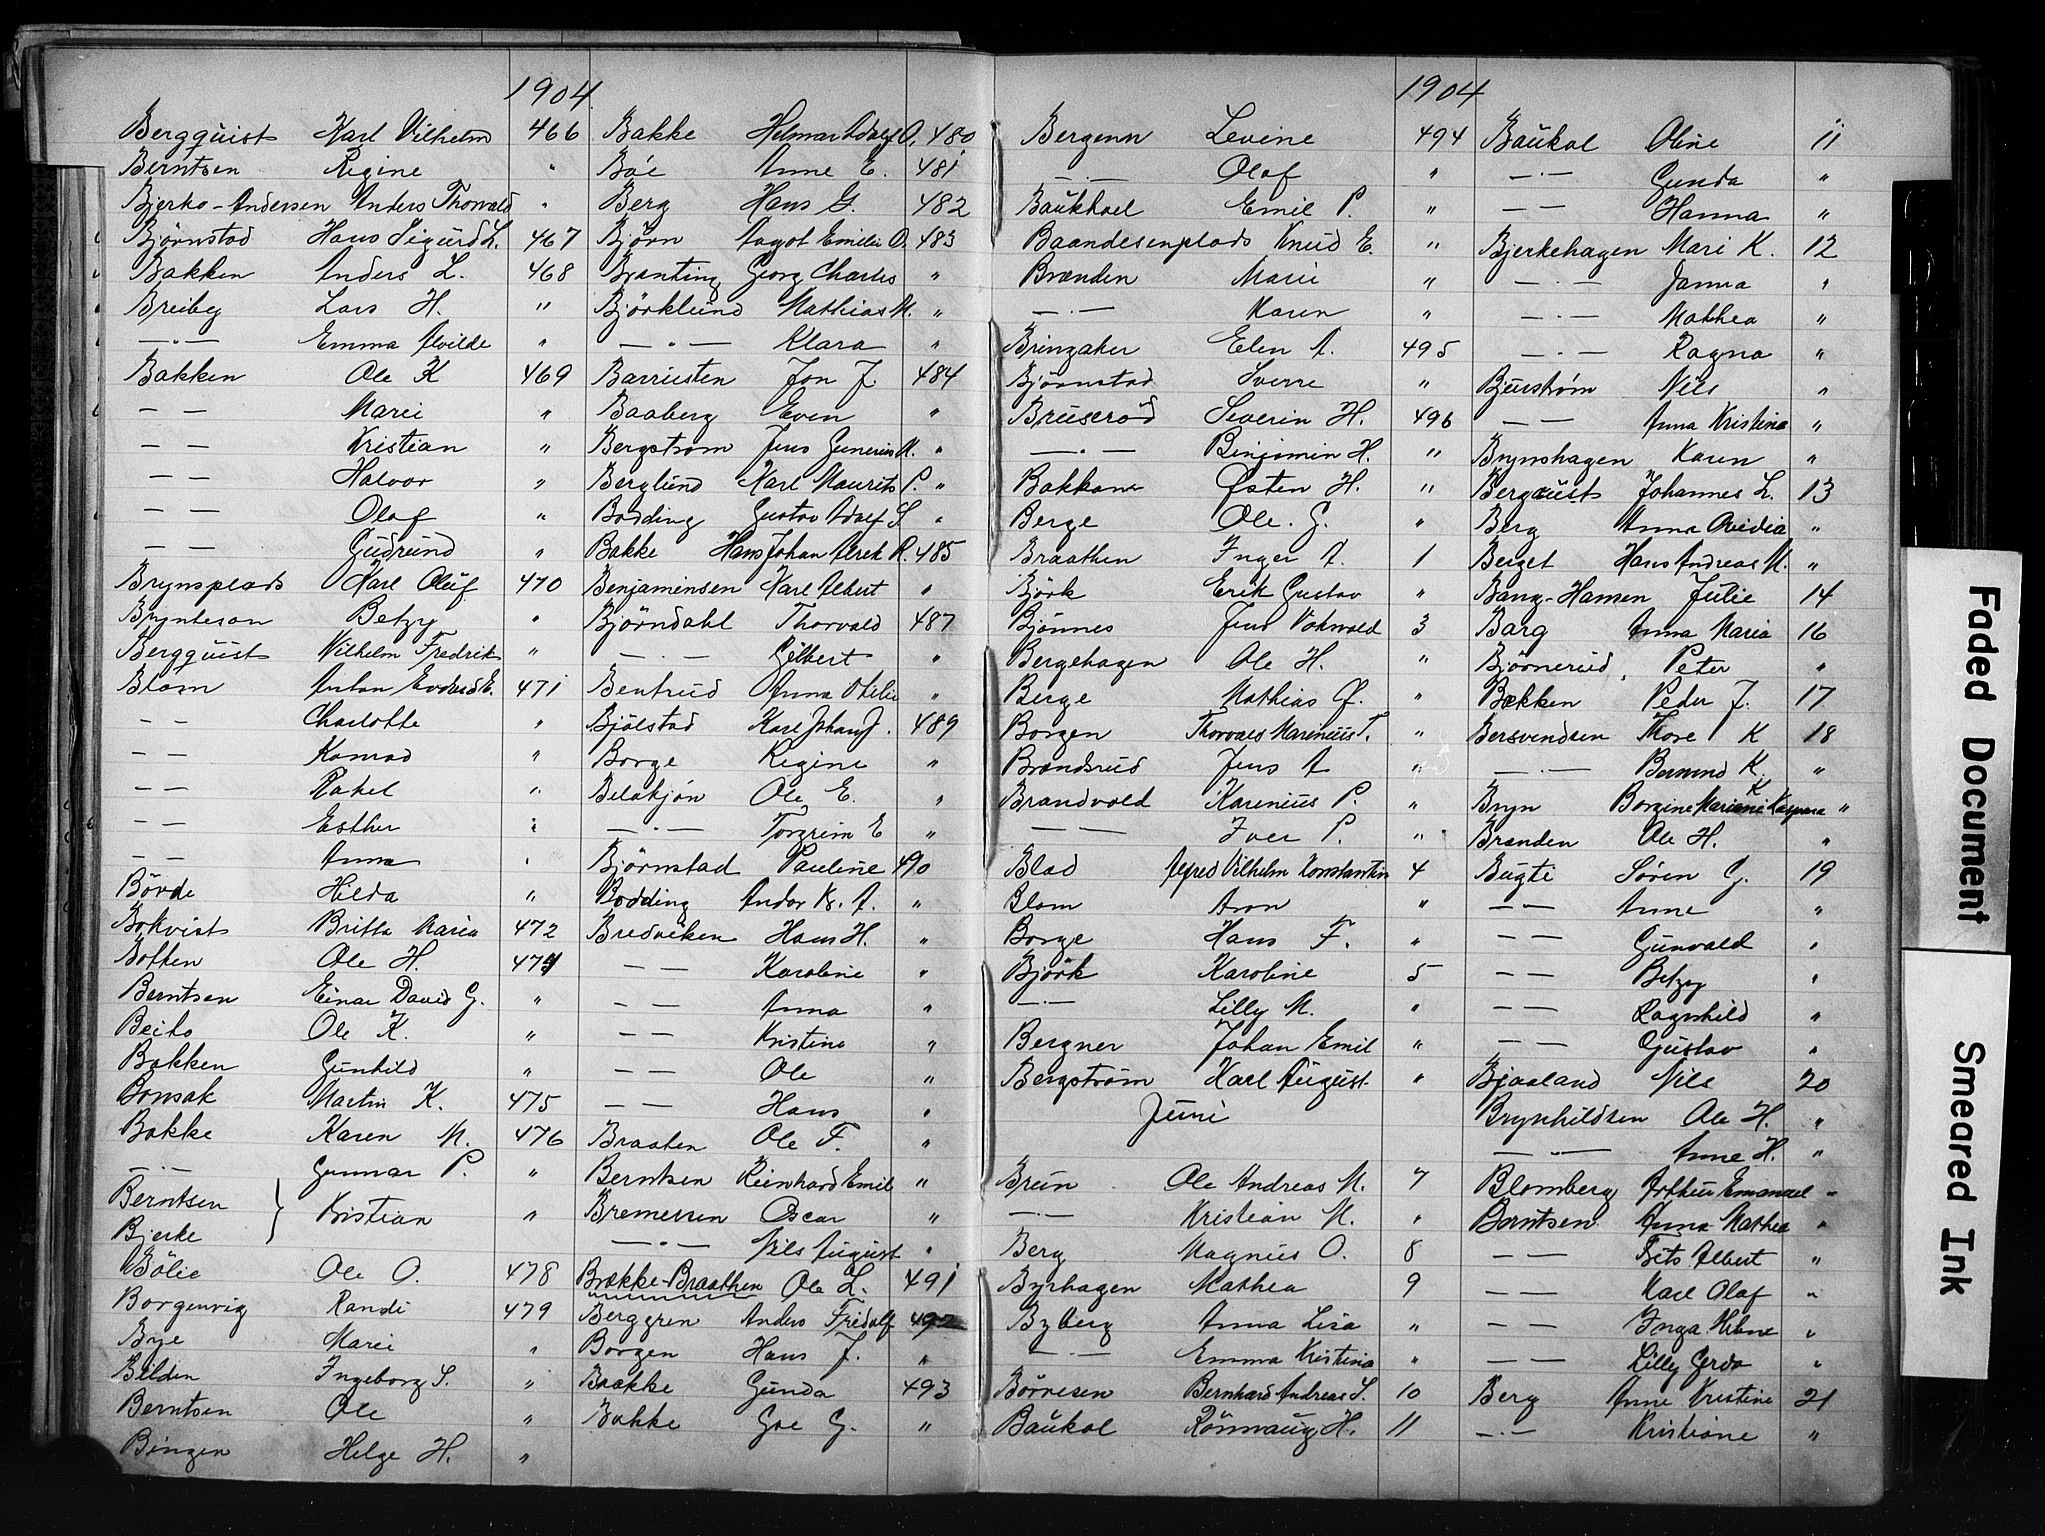 1904
Bergquist Karl Vilhelm 466
Berntsen Regine "
Bjerko-Andersen Anders Thorvald "
Björnstad Hans Sigurd L. 467
Bakken Anders L. 468
Breiby Lars H. "
— " — Emma Alvilde "
Bakken Ole K 469
— — Marie "
— — Kristian "
— — Halvor "
— — Olaf "
— — Gudrund "
Brynsplads Karl Oluf 470
Brynteson Betzy "
Bergquist Vilhelm Fredrik "
Blom Anton Evdard E. 471
— — Charlotte "
— — Konrad "
— — Rakel "
— — Esther "
— — Anna "
Bövde Hilda "
Bokvist Britta Maria 472
Botten Ole H. 474
Berntsen Einar David G. "
Beito Ole K. "
Bakken Gunhild "
Bonsak Martin K. 475
Bakke Karen M. 476
— " — Gunnar P. "
Berntsen } Kristian "
Bjerke
Bölie Ole O. 478
Borgenvig Randi 479
Bye Marie "
Bilden Ingeborg S. "
Berntsen Ole "
Bingen Helge H. "
Bakke Helmar Adolf O. 480
Böe Anne E. 481
Berg Hans G. 482
Björn Aagot Emilie O. 483
Bjanting Georg Charles "
Björklund Mathias M. "
— " — Klara "
Barriusten Jon J. 484
Baaberg Even "
Bergström Jens Gunerius M. "
Berglund Karl Maurits P. "
Bodding Gustav Adolf S "
Bakke Hans Johan Alrek R. 485
Benjaminsen Karl Albert "
Björndahl Thorvald 487
— " — Gilbert "
Bentrud Anna Otelie "
Bjölstad Karl Johan J. 489
Borge Regine "
Belakjön Ole E. "
— " — Torgrim E "
Björnstad Pauline 490
Bodding Andor Kr. A. "
Bredviken Hans H. "
— — Karoline "
— — Anna "
— — Kristine "
— — Ole "
— — Hans "
Braaten Ole F. "
Berntsen Reinhard Emil "
Bremersen Oscar "
— " — Nils August "
Brække-Braathen Ole L. 491
Berggren Anders Fridolf 492
Borgen Hans J. "
Baakke Gunda 493
Bakke Goe G. "
1904
Bergenn Levine 494
— " — Olaf "
Baukhol Emil P. "
Baandesenplads Knud E. "
Brænden Marie "
— " — Karen "
Bringaker Elen A. 495
Björnstad Sverre "
Bruseröd Severin H. 496
— " — Binjamin H. "
Bakkane Østen H. "
Berge Ole. G. "
Braathen Inger A. 1
Björk Erik Gustav "
Bjönnes Jens Vohwald 3
Bergehagen Ole H. "
Berge Mathias Ø. "
Borgen Thorvald Marinius T. "
Brændsrud Jens A "
Brandvold Karenius P. "
— — Iver P. "
Blad Alfred Vilhelm Konstantin 4
Blom Aron "
Borge Hans F. "
Björk Karoline 5
— " — Lilly M. "
Bergner Johan Emil "
Bergström Karl August "
Juni
Brun Ole Andreas M. 7
— " — Kristian M. "
Berg Magnus O. 8
Byrhagen Mathea 9
Byberg Anna Lisa "
— " — Emma Kristina "
Börresen Bernhard Andreas S. 10
Baukol Rönnaug H. 11
Baukol Oline 11
— " — Gunda "
— — Hanna "
Bjerkehagen Mari K. 12
— " — Janna "
— " — Mathea "
— " — Ragna "
Bjurström Nils "
— — Anna Kristine "
Brynshagen Karen "
Bergqust Johannes L. 13
Berg Anna Ovidia "
Berget Hans Andreas M. "
Bang-Hansen Julie 14
Barg Anna Maria 16
Björnerud, Peter "
Bækken Peder J. 17
Bersvendsen Thore K 18
— " — Bernend K. "
Bryn Borgine Mariane Kaspara "
Brænden Ole H. "
Bugti Sören G. 19
— — Anne "
— — Gunvald "
— — Betzy "
— — Ragnhild "
— — Gustav "
Bjaaland Nils 20
Brynhildsen Ole H. "
— " — Anne H. "
Blomberg Arthur Emanuel "
Berntsen Anna Mathea "
— — Tits Albert "
— — Karl Olaf "
— — Inga Helene "
— — Lilly Gerda "
Berg Anne Kristine 21
— " — Kristiane "
Faded Document
Smeared Ink